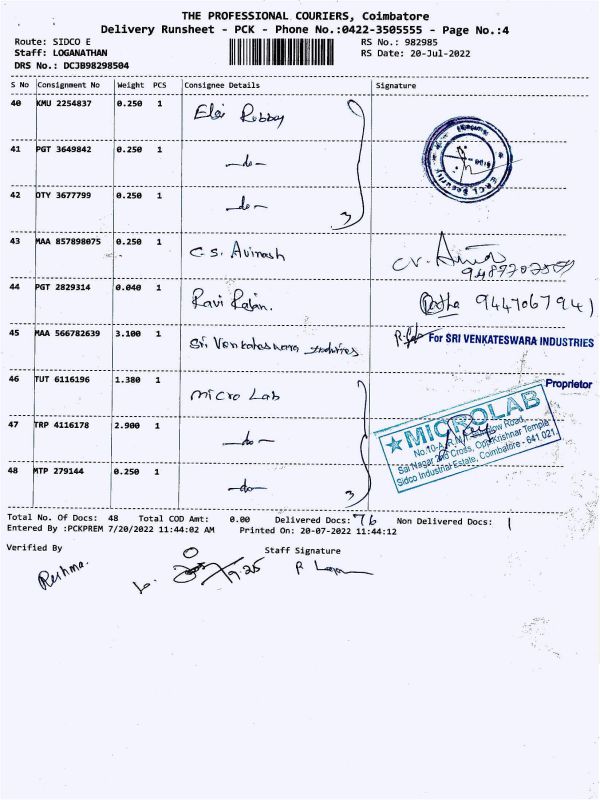 THE PROFESSIONAL COURIERS, Coimbatore
Delivery Runsheet - PCK - Phone No.:0422-3505555 - Page No.:4
Route: SIDCO E
RS No.: 982985
Staff: LOGANATHAN
RS Date: 20-Jul-2022
DRS No.: DCJB98298504
S No Consignment No Weight PCS Consignee Details Signature
40 KMU 2254837 0.250 1
41 PGT 3649842 0.250 1 -do-
42 DTY 3677799 0.250 1 -do-
3
43 MAA 857898075 0.250 1 C.S. Avinash
44 PGT 2829314 0.040 1 Ravi Rajan. 9447067941
45 MAA 566782639 3.100 1 Sri Venkateswara For SRI VENKATESWARA INDUSTRIES
Proprietor
46 TUT 6116196 1.380 1 Micro Lab
47 TRP 4116178 2.900 1 -do-
48 MTP 279144 0.250 1 -do-
3
MICROLAB
Sai Nagar 2nd Cross, Opp.Krishnar Temple
Sidco Industrial Estate, Coimbatore - 641 021.
Total No. Of Docs: 48 Total COD Amt: 0.00 Delivered Docs: 76 Non Delivered Docs: 1
Entered By :PCKPREM 7/20/2022 11:44:02 AM Printed On: 20-07-2022 11:44:12
Verified By Staff Signature
Reshma.